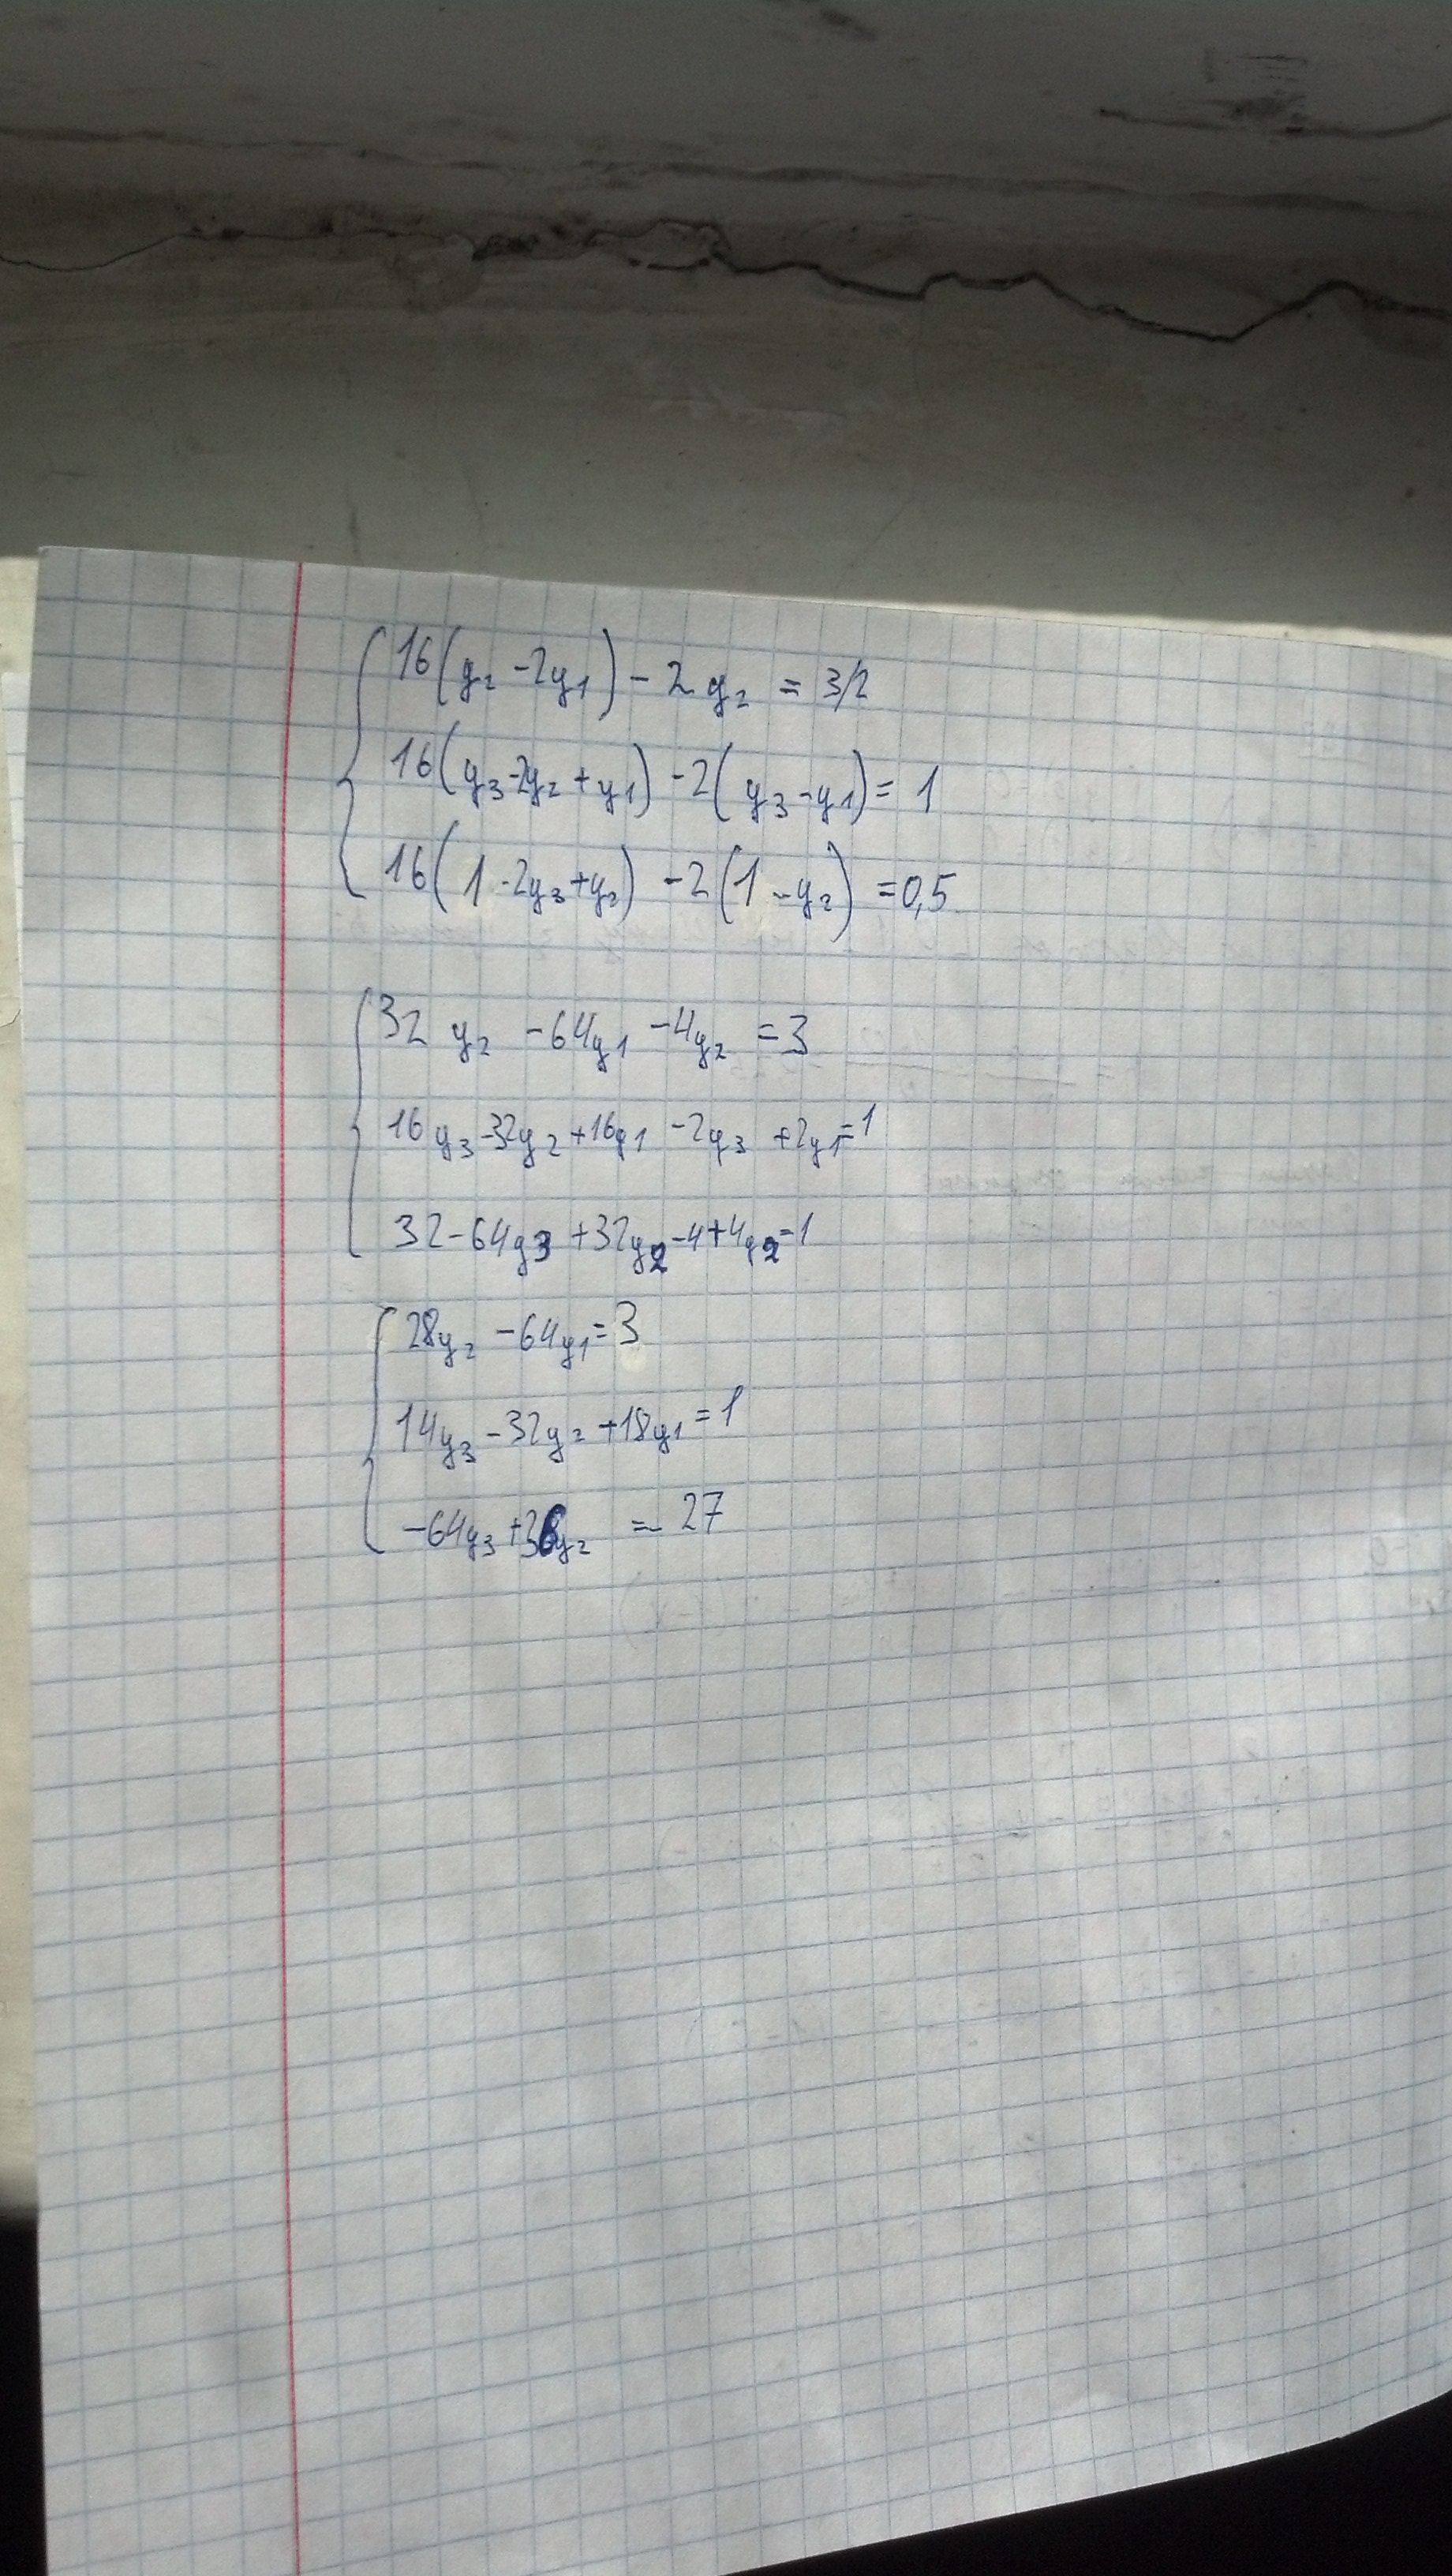 16(y₂ -2y₁) - 2y₂ = 3/2
16(y₃-2y₂+y₁) -2(y₃-y₁)= 1
16(1-2y₃+y₂) -2(1-y₂) =0,5
32 y₂ -64y₁ -4y₂ =3
16y₃-32y₂+16y₁ -2y₃ +2y₁=1
32-64y₃+32y₂-4+4y₂=1
28y₂ -64y₁=3
14y₃-32y₂+18y₁=1
-64y₃+36y₂ =-27